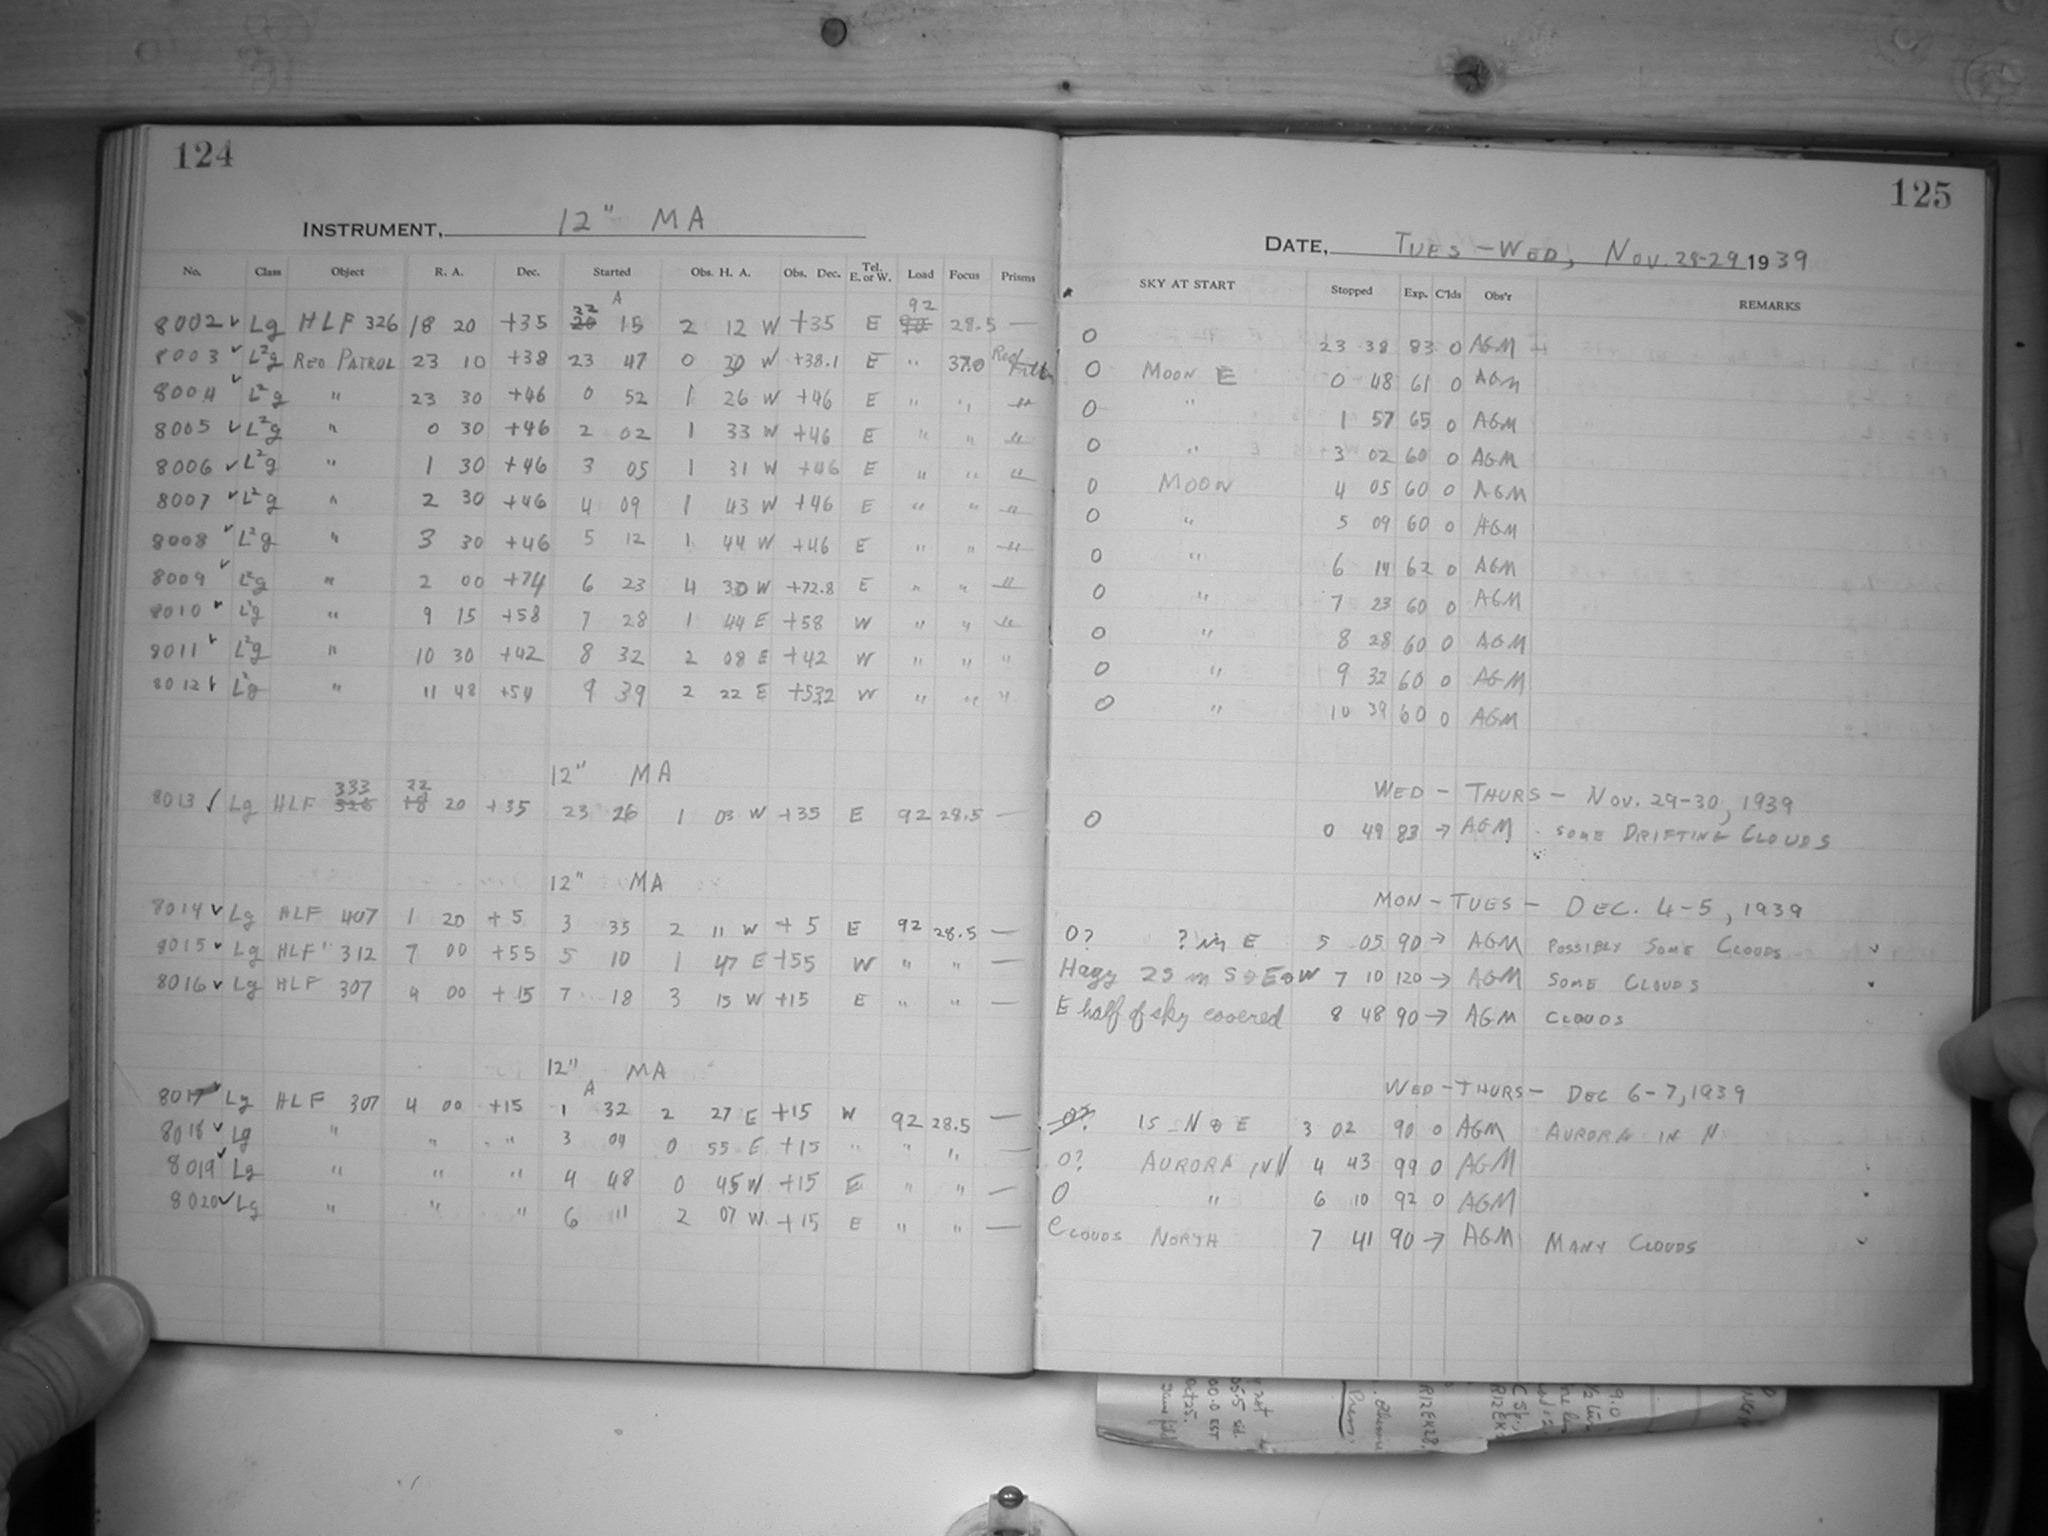 124
INSTRUMENT, 12" MA
No. Class Object R. A. Dec. Started Obs. H. A. Obs. Dec. Tel. E. or W. Load Focus Prisms
8002 Lg HLF 326 18 20 +35 22 15 A 2 12 W +35 E 92 28.5 —
8003 L²g RED PATROL 23 10 +38 23 47 0 30 W +38.1 E " 37.0 Red Filter
8004 L²g " 23 30 +46 0 52 1 26 W +46 E " " "
8005 L²g " 0 30 +46 2 02 1 33 W +46 E " " "
8006 L²g " 1 30 +46 3 05 1 31 W +46 E " " "
8007 L²g " 2 30 +46 4 09 1 43 W +46 E " " "
8008 L²g " 3 30 +46 5 12 1 44 W +46 E " " "
8009 L²g " 2 00 +74 6 23 4 30 W +72.8 E " " "
8010 L²g " 9 15 +58 7 28 1 44 E +58 W " " "
8011 L²g " 10 30 +42 8 32 2 08 E +42 W " " "
8012 L²g " 11 48 +54 9 39 2 22 E +53.2 W " " "
12" MA
8013 Lg HLF 333 22 20 +35 23 26 1 03 W +35 E 92 28.5 —
12" MA
8014 Lg HLF 407 1 20 +5 3 35 2 11 W +5 E 92 28.5 —
8015 Lg HLF 312 7 00 +55 5 10 1 47 E +55 W " " —
8016 Lg HLF 307 4 00 +15 7 18 3 15 W +15 E " " —
12" MA
8017 Lg HLF 307 4 00 +15 1 32 A 2 27 E +15 W 92 28.5 —
8018 Lg " " " 3 09 0 55 E +15 " " " —
8019 Lg " " " 4 48 0 45 W +15 E " " —
8020 Lg " " " 6 11 2 07 W +15 E " " —
125
DATE, TUES - WED, NOV. 28-29 1939
SKY AT START Stopped Exp. C'lds Obs'r REMARKS
0 23 38 83 0 AGM
0 MOON E 0 48 61 0 AGM
0 " 1 57 65 0 AGM
0 " 3 02 60 0 AGM
0 MOON 4 05 60 0 AGM
0 " 5 09 60 0 AGM
0 " 6 14 62 0 AGM
0 " 7 23 60 0 AGM
0 " 8 28 60 0 AGM
0 " 9 32 60 0 AGM
0 " 10 39 60 0 AGM
WED - THURS - NOV. 29-30, 1939
0 0 49 83 → AGM SOME DRIFTING CLOUDS
MON - TUES - DEC. 4-5, 1939
0? ? in E 5 05 90 → AGM POSSIBLY SOME CLOUDS
Hazy 7 10 120 → AGM SOME CLOUDS
E half of sky covered 8 48 90 → AGM CLOUDS
WED - THURS - DEC 6-7, 1939
0? N & E 3 02 90 0 AGM AURORA IN N
0? AURORA IN N 4 43 99 0 AGM
0 " 6 10 92 0 AGM
CLOUDS NORTH 7 41 90 → AGM MANY CLOUDS